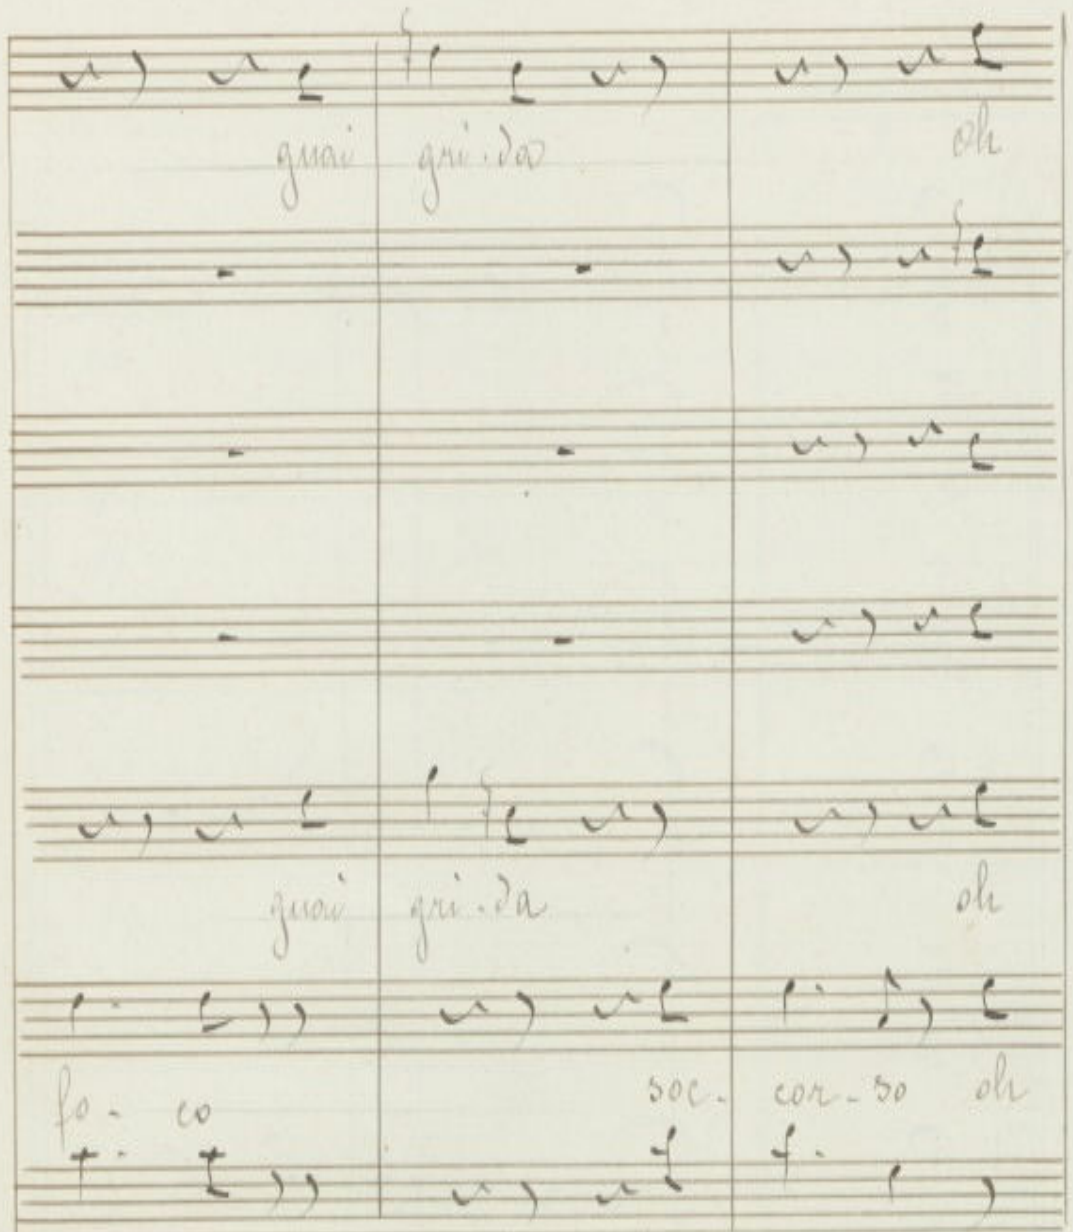 guai gri-da oh
guai gri-da oh
fo- co soc- cor-so oh